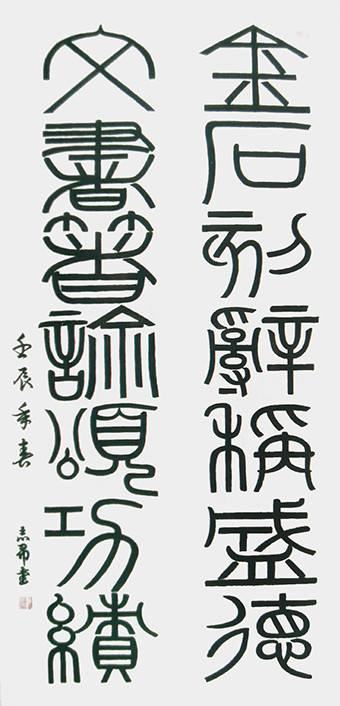 金石刻辭稱盛德
文書著論頌功績
壬辰年春